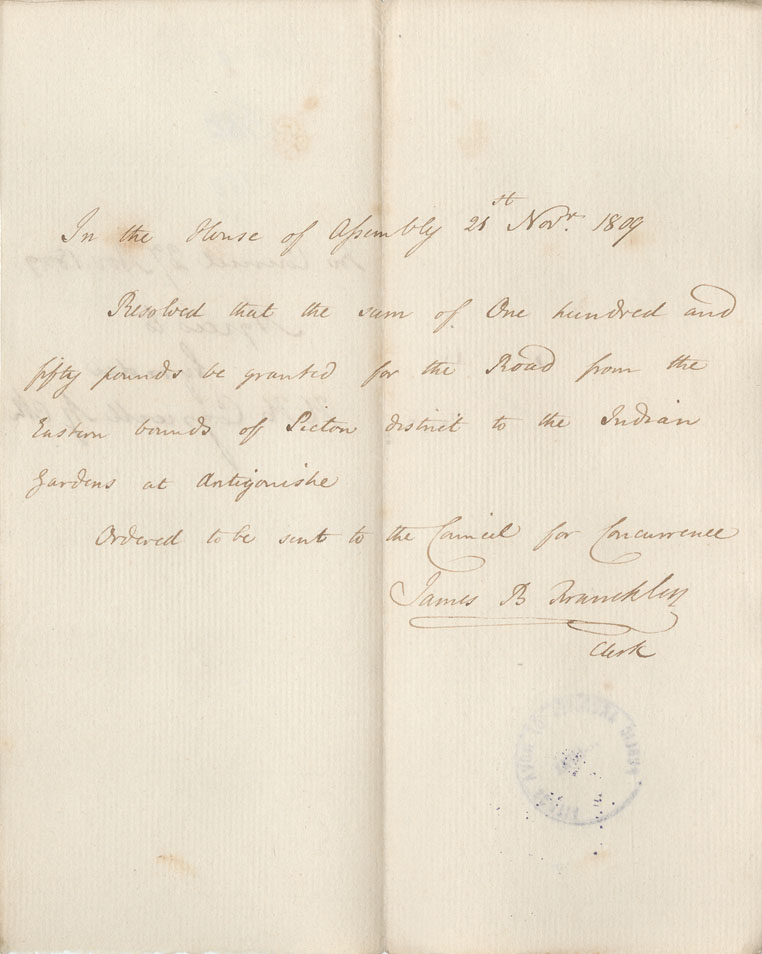 In the House of Assembly 21st Novr. 1809
Resolved that the sum of One hundred and
fifty pounds be granted for the Road from the
Eastern bounds of Picton district to the Indian
Gardens at Antigonishe
Ordered to be sent to the Council for Concurrence
James B Franchlin
Clerk